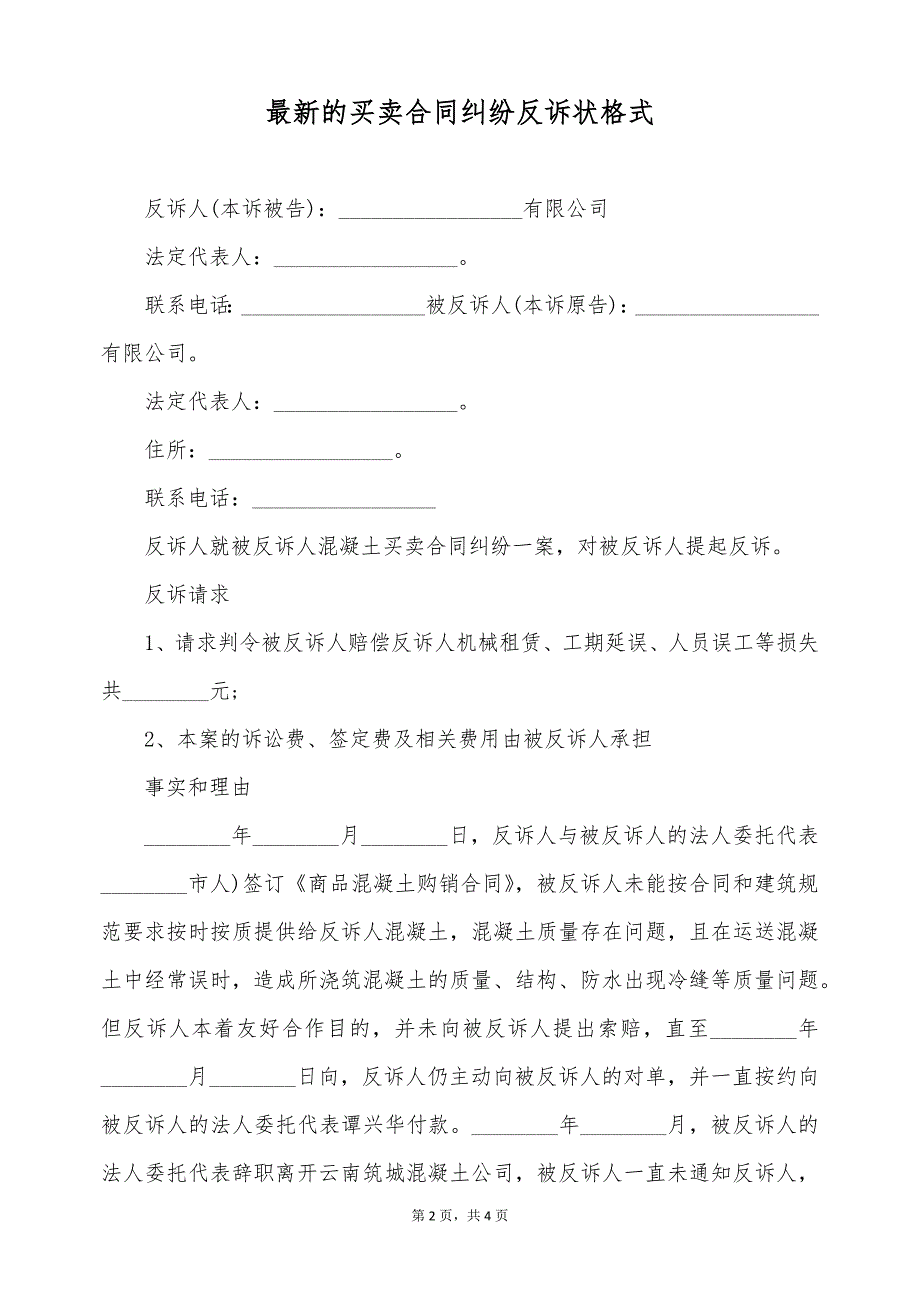 最新的买卖合同纠纷反诉状格式
反诉人(本诉被告)：_________________有限公司
法定代表人：_________________。
联系电话：_________________被反诉人(本诉原告)：_________________
有限公司。
法定代表人：_________________。
住所：_________________。
联系电话：_________________
反诉人就被反诉人混凝土买卖合同纠纷一案，对被反诉人提起反诉。
反诉请求
1、请求判令被反诉人赔偿反诉人机械租赁、工期延误、人员误工等损失
共________元;
2、本案的诉讼费、签定费及相关费用由被反诉人承担
事实和理由
________年________月________日，反诉人与被反诉人的法人委托代表
________市人)签订《商品混凝土购销合同》，被反诉人未能按合同和建筑规
范要求按时按质提供给反诉人混凝土，混凝土质量存在问题，且在运送混凝
土中经常误时，造成所浇筑混凝土的质量、结构、防水出现冷缝等质量问题。
但反诉人本着友好合作目的，并未向被反诉人提出索赔，直至________年
________月________日向，反诉人仍主动向被反诉人的对单，并一直按约向
被反诉人的法人委托代表谭兴华付款。________年________月，被反诉人的
法人委托代表辞职离开云南筑城混凝土公司，被反诉人一直未通知反诉人，
第 2 页，共 4 页